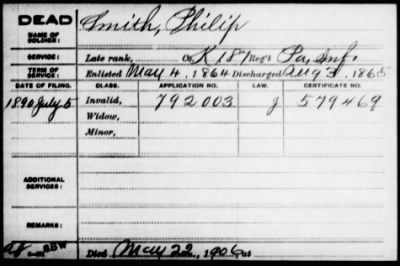 DEAD
NAME OF SOLDIER: Smith, Philip
SERVICE: Late rank, Co. K 187 Reg't Pa, Inf.
TERM OF SERVICE: Enlisted May 4, 1864 Discharged Aug 3, 1865
DATE OF FILING. CLASS. APPLICATION NO. LAW. CERTIFICATE NO.
1890 July 5 Invalid, 792003 J 579469
Widow,
Minor,
ADDITIONAL SERVICES:
REMARKS:
SBW
Died May 22, 1906, at